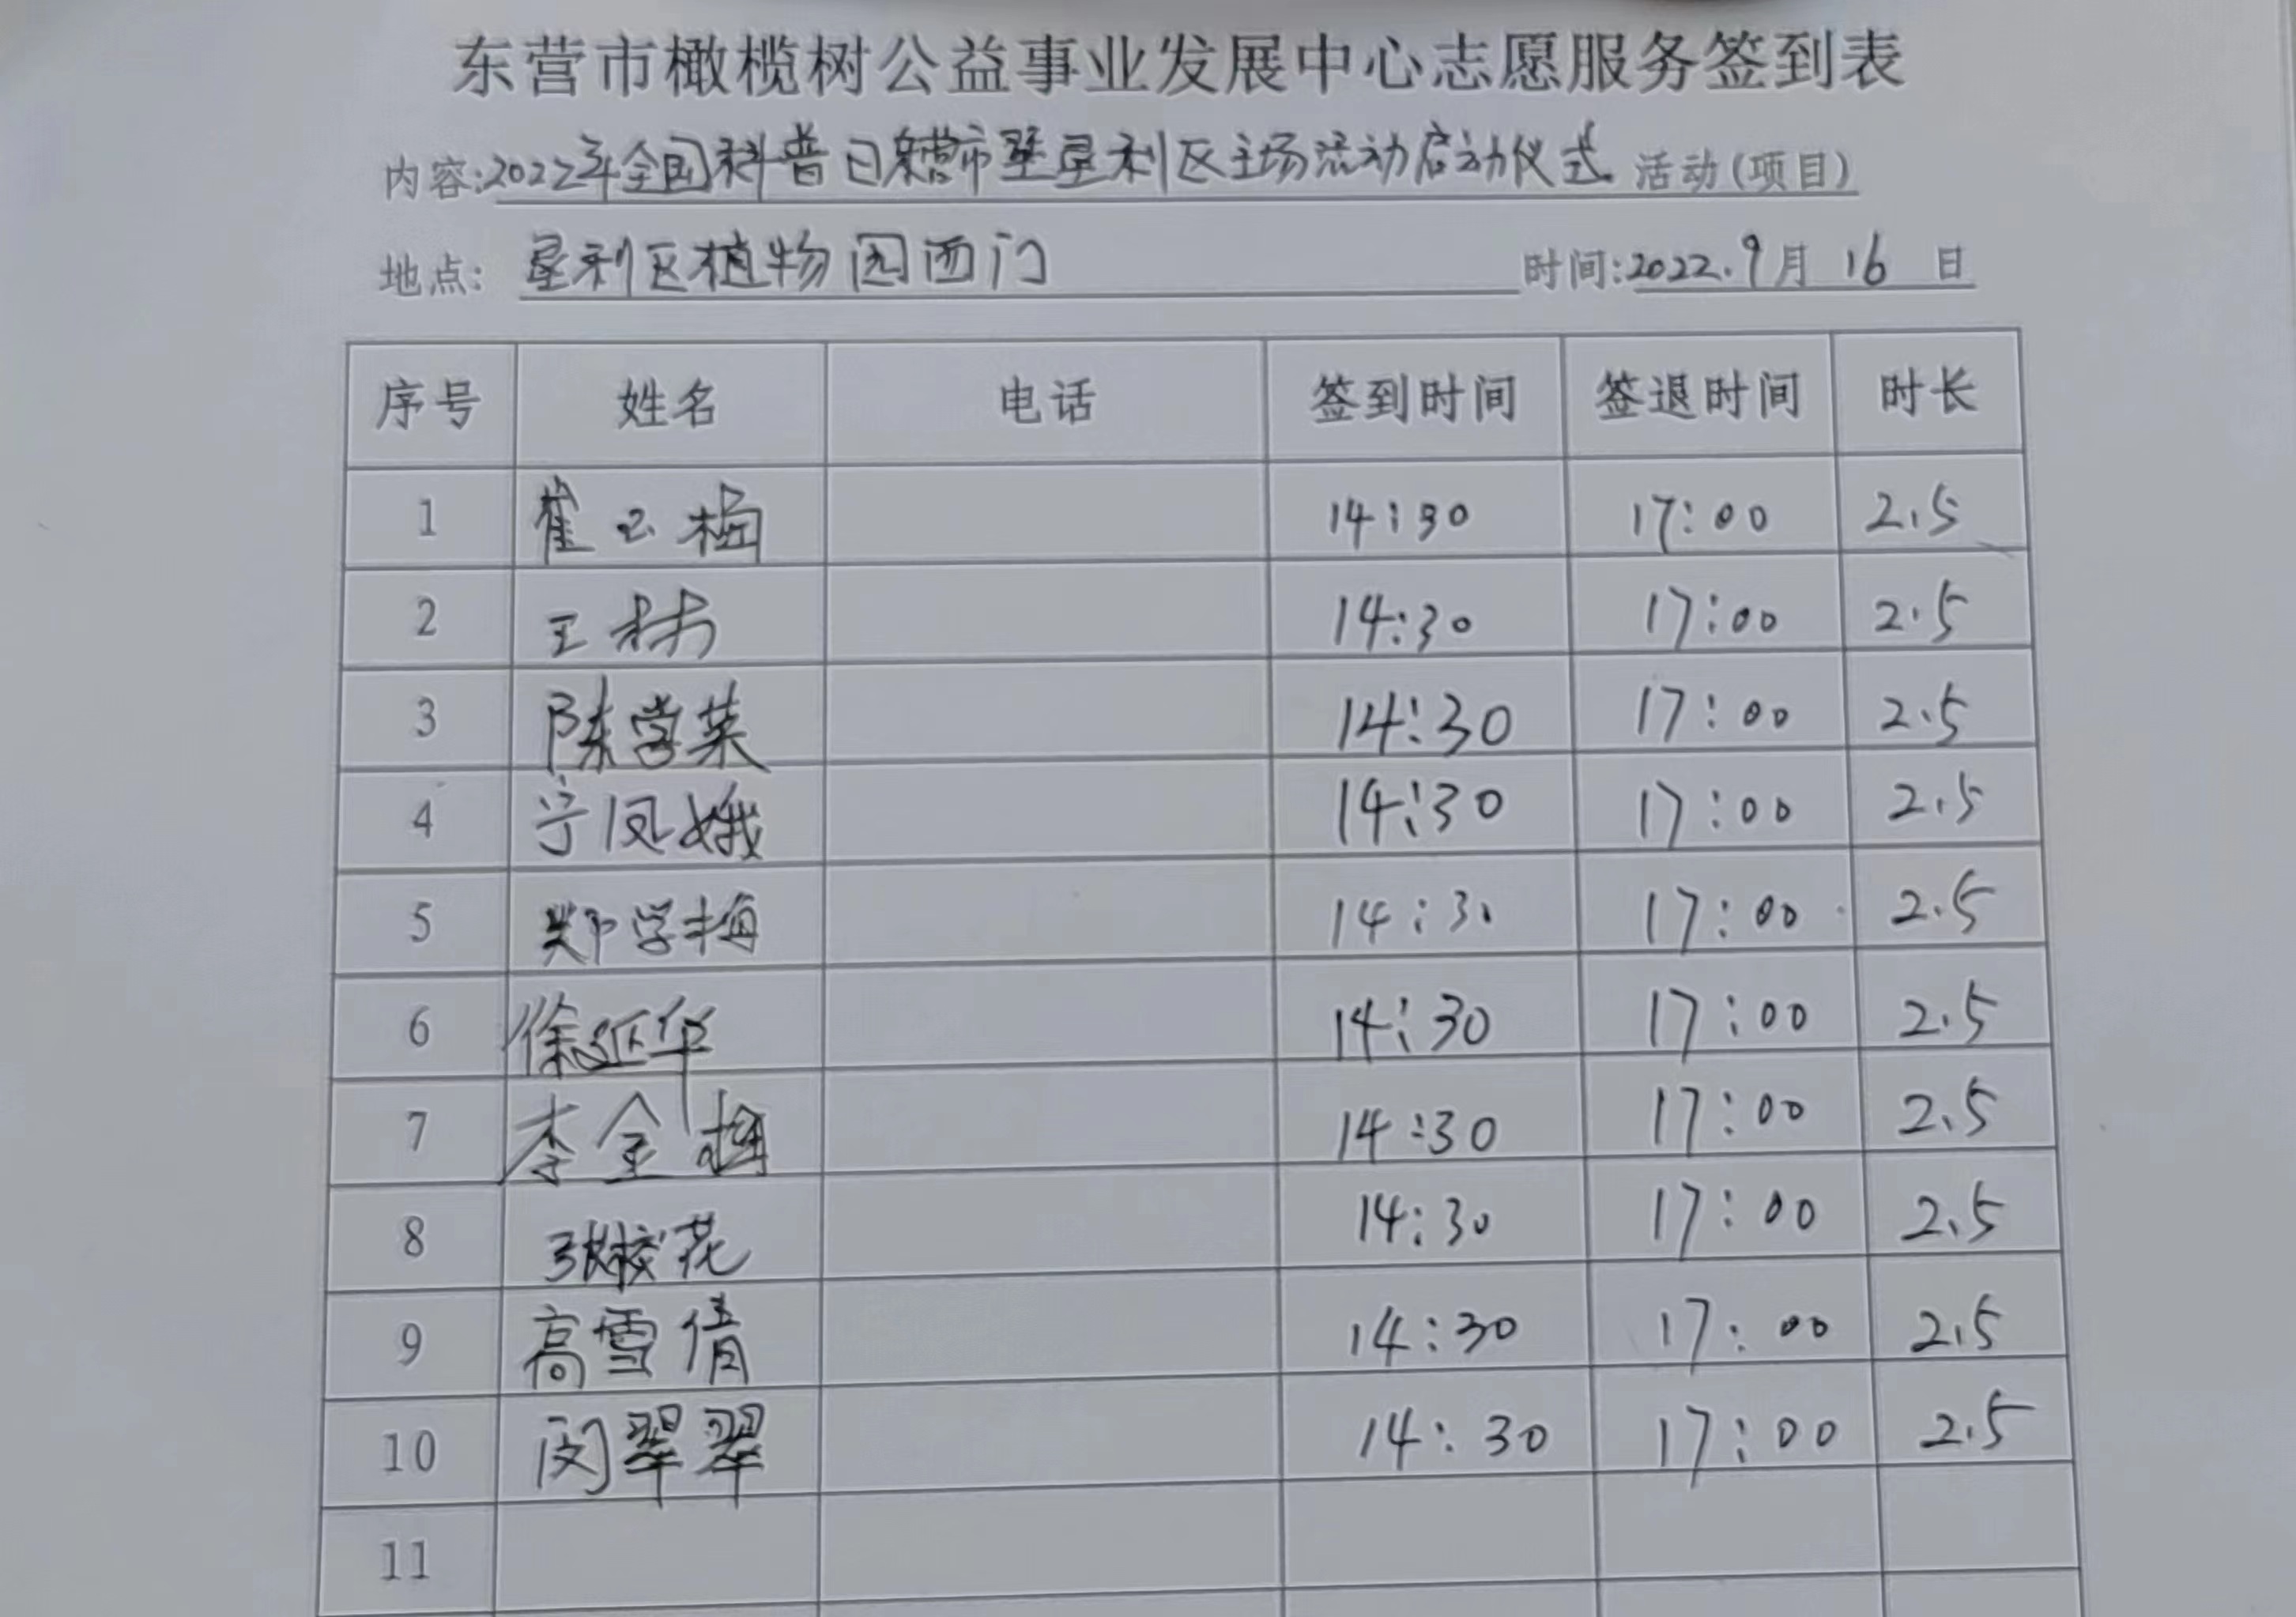 东营市橄榄树公益事业发展中心志愿服务签到表
内容:2022年全国科普日东营市垦利区主场活动启动仪式 活动(项目)
地点: 垦利区植物园西门 时间:2022.9月 16 日
序号 姓名 电话 签到时间 签退时间 时长
1 崔玉梅 14:30 17:00 2.5
2 王 14:30 17:00 2.5
3 陈学英 14:30 17:00 2.5
4 宁凤娥 14:30 17:00 2.5
5 郑学梅 14:30 17:00 2.5
6 徐延华 14:30 17:00 2.5
7 李金梅 14:30 17:00 2.5
8 张校花 14:30 17:00 2.5
9 高雪倩 14:30 17:00 2.5
10 闵翠翠 14:30 17:00 2.5
11